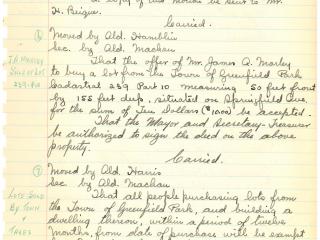 copy of this motion be sent to Mr.
H. Beique.
Carried.
6 Moved by Ald. Hamblin
Sec. by Ald. Machan
That the offer of Mr. James A. Morley
to buy a lot from the Town of Greenfield Park
Cadastral 239 Part 10 measuring 50 feet front
by 155 feet deep, situated on Springfield Ave.
for the sum of Ten Dollars ($10.00) be accepted.
That the Mayor and Secretary-Treasurer
be authorized to sign the deed on the above
property.
Carried.
7 Moved by Ald. Harris
Sec by Ald. Machan
That all people purchasing lots from
the Town of Greenfield Park, and building a
dwelling thereon, within a period of twelve
months, from date of purchase will be exempt
Lots Sold
By Town
Taxes